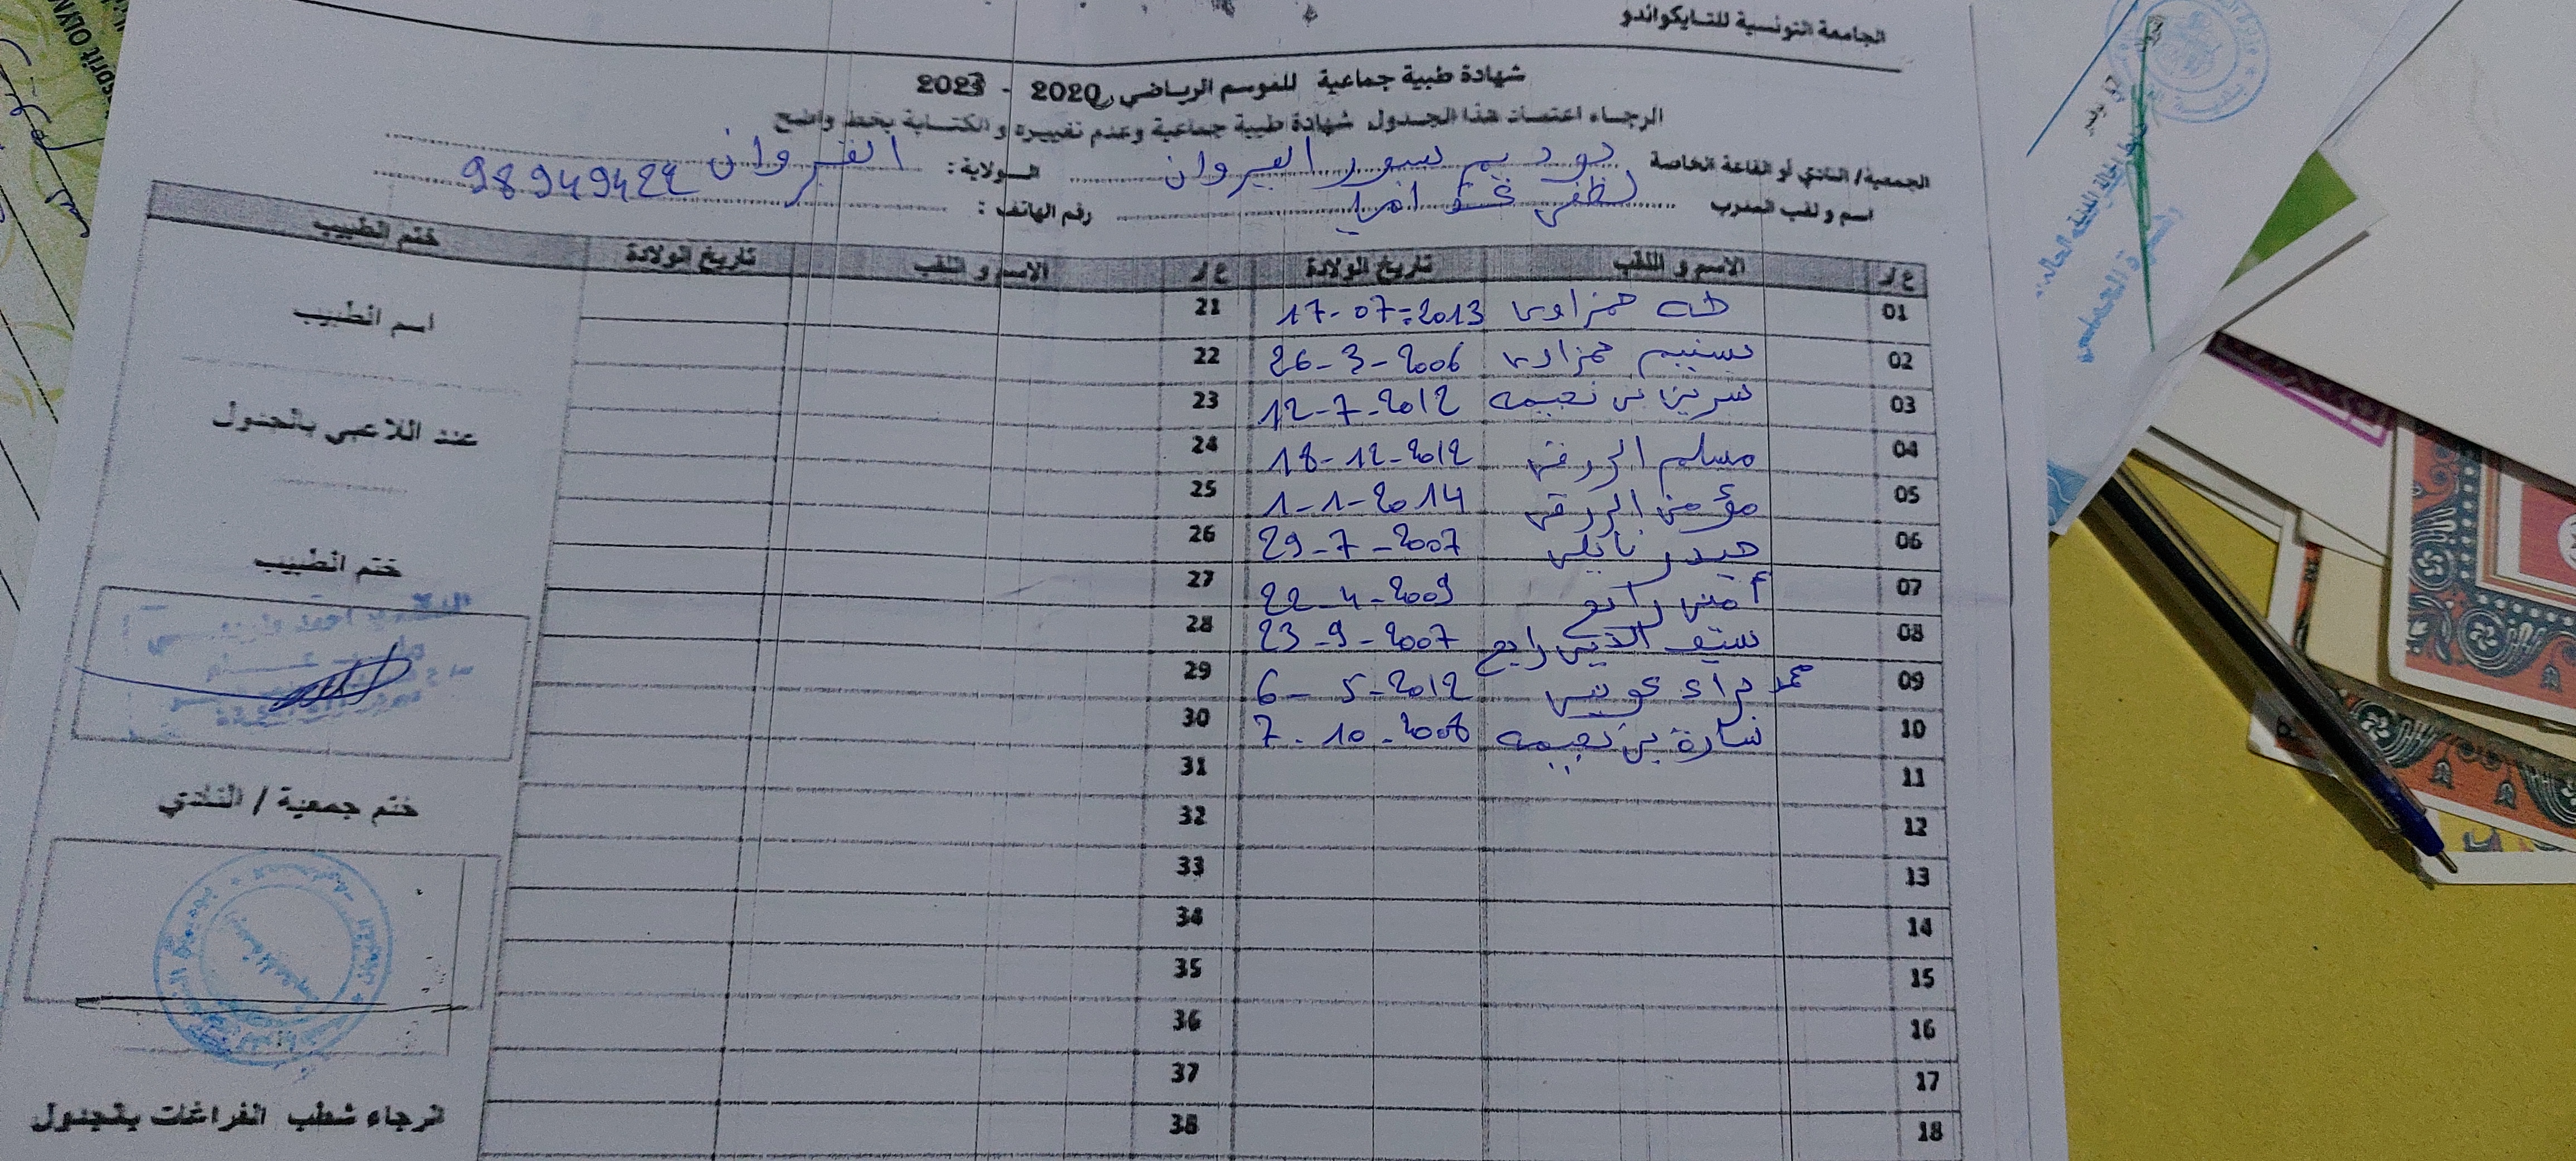 الجامعة التونسية للتايكواندو
شهادة طبية جماعية للموسم الرياضي 2020 - 2023
الرجاء اعتماد هذا الجدول شهادة طبية جماعية وعدم تغييره و الكتابة بخط واضح
الجمعية/ النادي أو القاعة الخاصة القيروان الولاية : القيروان
اسم و لقب المدرب لطفي رقم الهاتف : 98949422
ع/ر الاسم و اللقب تاريخ الولادة ع/ر الاسم و اللقب تاريخ الولادة ختم الطبيب
01 طه حمزاوي 17-07-2013 21
02 تسنيم حمزاوي 26-3-2006 22
03 سرين بن نعيمه 12-7-2012 23
04 مسلم الزرقي 18-12-2012 24
05 مؤمن الزرقي 1-1-2014 25
06 حيدر نايلي 29-7-2007 26
07 أمين رابح 22-4-2009 27
08 سيف الدين رابح 23-9-2007 28
09 محمد براء عويني 6-5-2012 29
10 سارة بن نعيمه 7-10-2008 30
11 31
12 32
13 33
14 34
15 35
16 36
17 37
18 38
اسم الطبيب
عدد اللاعبي بالجدول
ختم الطبيب
ختم جمعية / النادي
الرجاء شطب الفراغات بالجدول